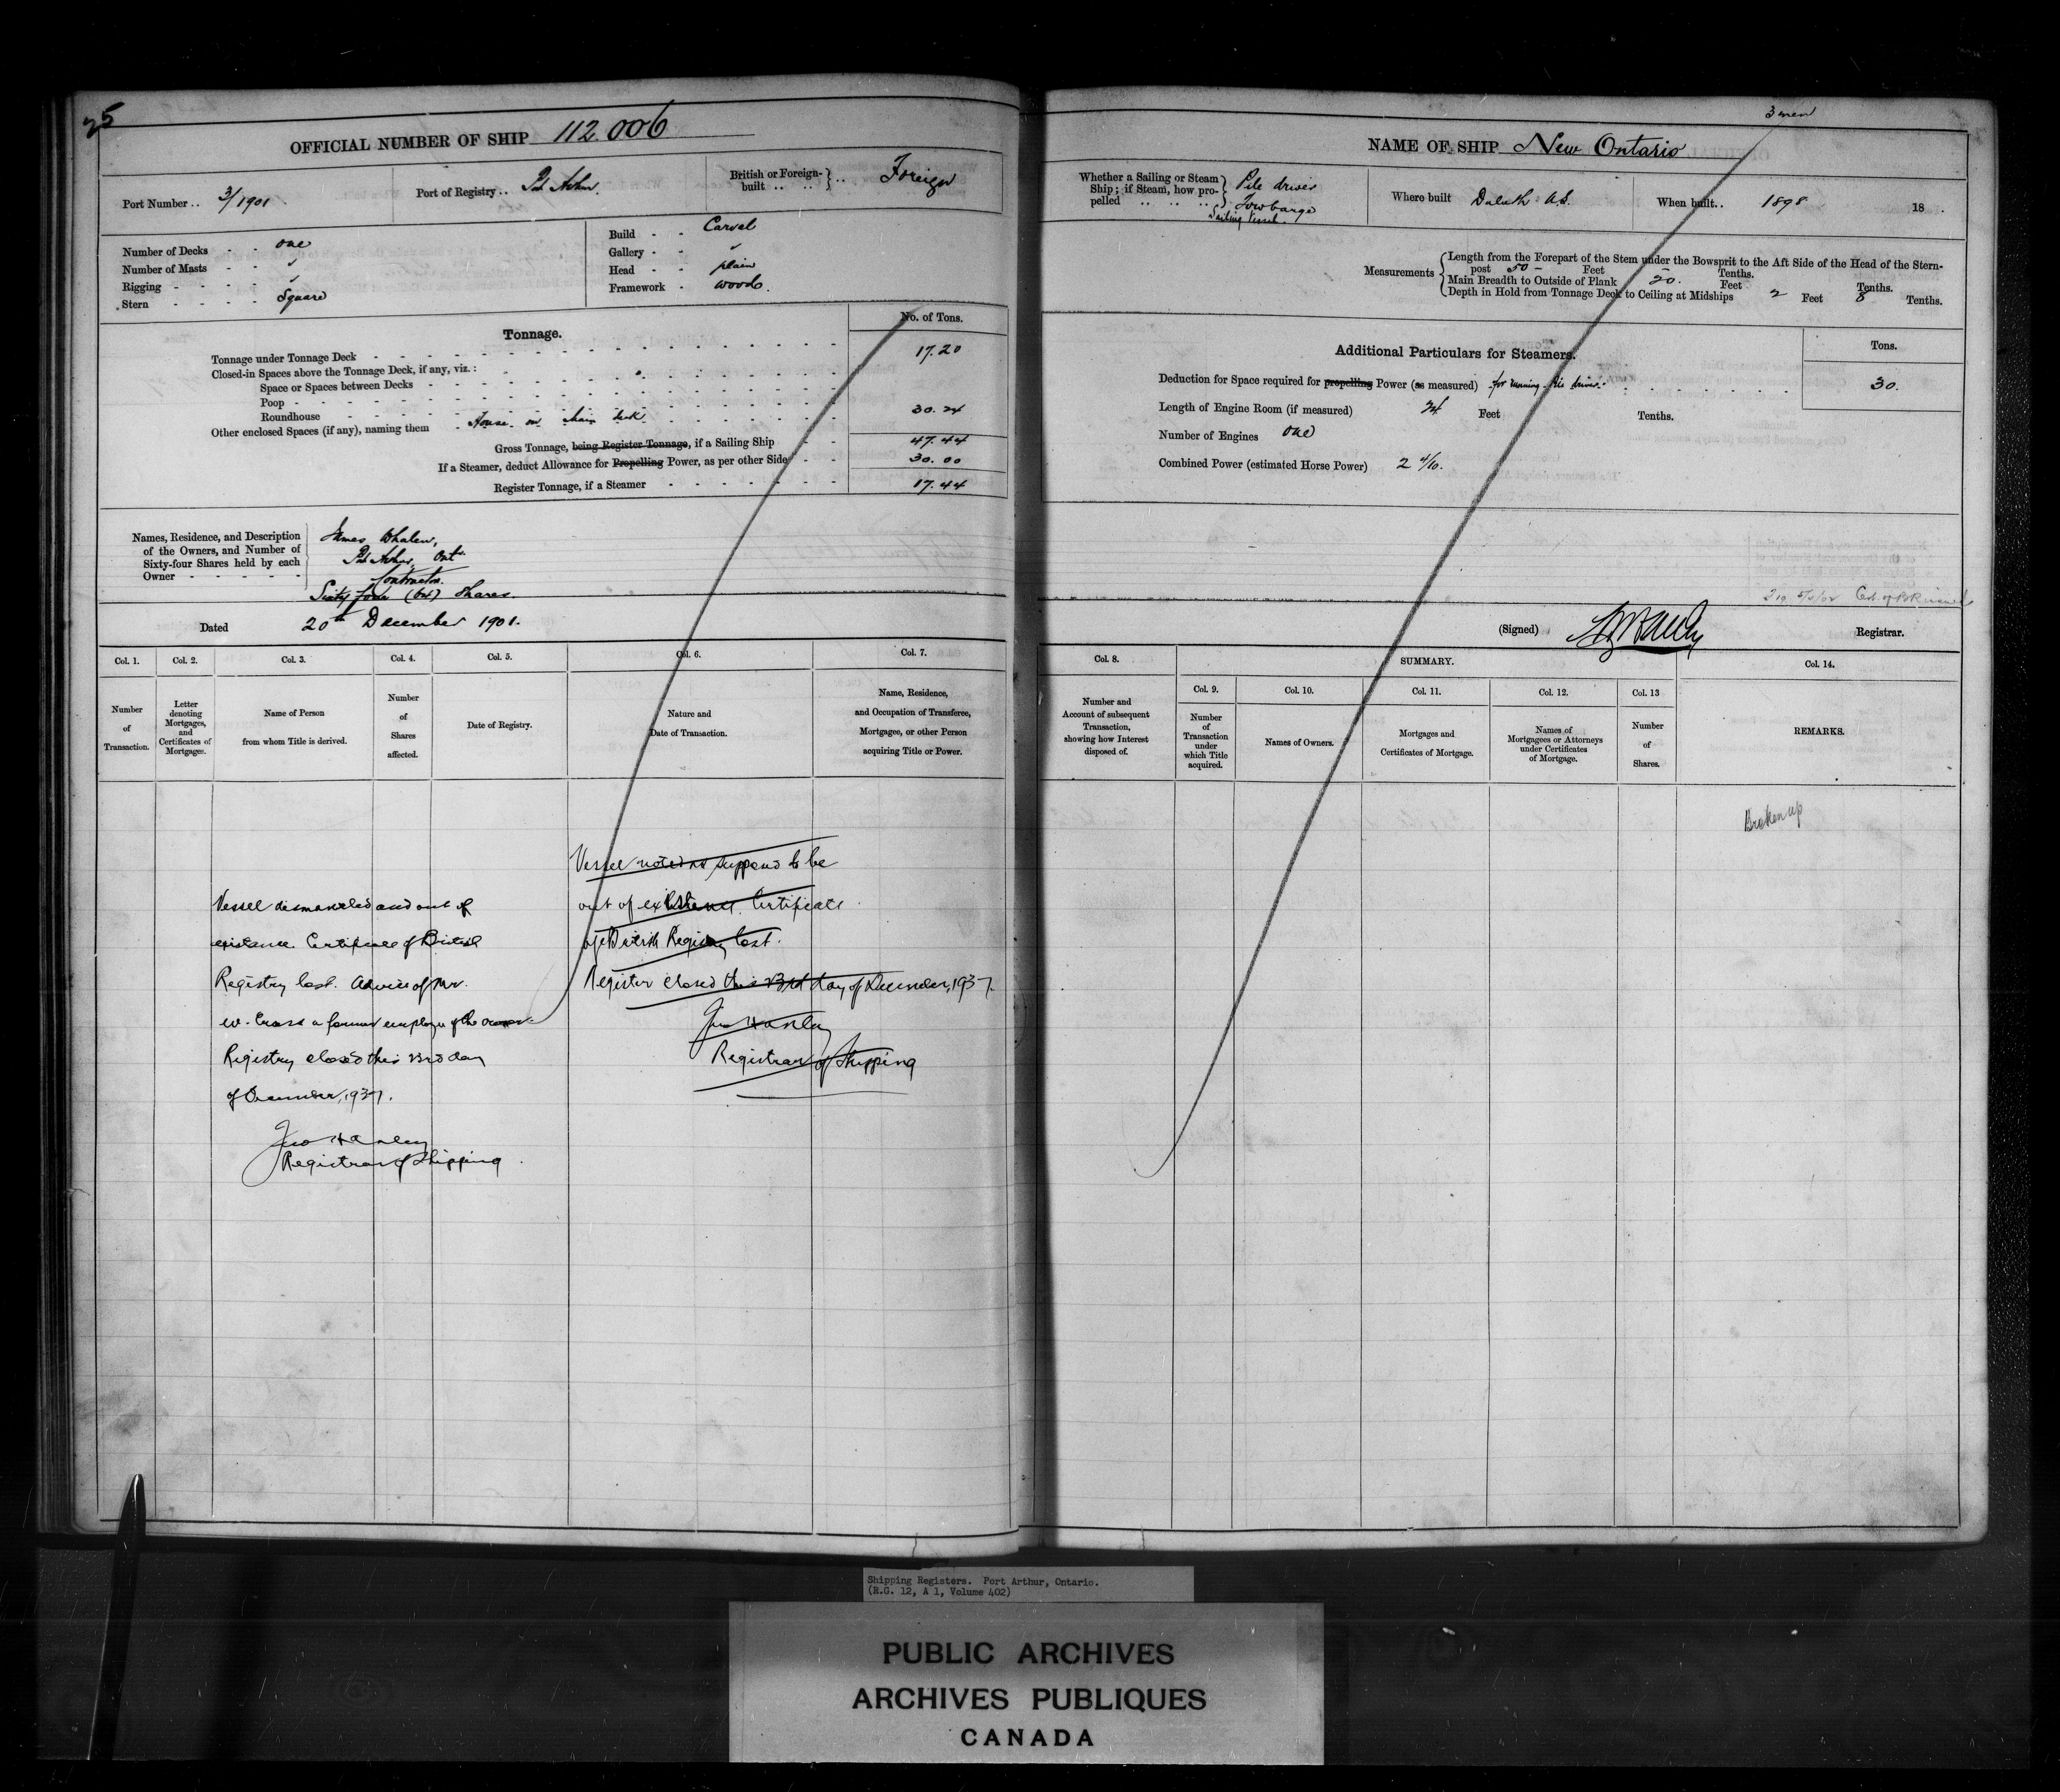 25
OFFICIAL NUMBER OF SHIP 112.006
Port Number .. 3/1901
Port of Registry .. Pt Arthur.
British or Foreign-built .. .. } .. Foreign
Number of Decks - - one
Number of Masts - - ✓
Rigging - - - - ✓
Stern - - - - Square
Build - - Carvel
Gallery - - ✓
Head - - plain
Framework - wood.
Tonnage.
No. of Tons.
Tonnage under Tonnage Deck 17.20
Closed-in Spaces above the Tonnage Deck, if any, viz.:
Space or Spaces between Decks
Poop
Roundhouse
Other enclosed Spaces (if any), naming them House on Main deck 30.24
Gross Tonnage, being Register Tonnage, if a Sailing Ship 47.44
If a Steamer, deduct Allowance for Propelling Power, as per other Side 30.00
Register Tonnage, if a Steamer 17.44
Names, Residence, and Description
of the Owners, and Number of
Sixty-four Shares held by each
Owner
James Whalen,
Pt Arthur, Ont
Contractor.
Sixty four (64) Shares.
Dated 20th December 1901.
Col. 1. Col. 2. Col. 3. Col. 4. Col. 5. Col. 6. Col. 7.
Number of Transaction.
Letter denoting Mortgages, and Certificates of Mortgages.
Name of Person from whom Title is derived.
Number of Shares affected.
Date of Registry.
Nature and Date of Transaction.
Name, Residence, and Occupation of Transferee, Mortgagee, or other Person acquiring Title or Power.
Vessel noted as supposed to be
out of existence. Certificate
of British Registry lost.
Register closed this 23rd day of December, 1937.
Jno Hanley
Registrar of Shipping
Vessel dismantled and out of
existence. Certificate of British
Registry lost. Advice of Mr.
W. Cross a former employee of the owner
Registry closed this 23rd day
of December, 1937.
Jno Hanley
Registrar of Shipping
3 men
NAME OF SHIP New Ontario
Whether a Sailing or Steam
Ship; if Steam, how pro-
pelled
Pile driver
Towbarge
Sailing Vessel
Where built Duluth U.S.
When built.. 1898 18
Measurements
Length from the Forepart of the Stem under the Bowsprit to the Aft Side of the Head of the Stern-
post 50 - Feet - Tenths.
Main Breadth to Outside of Plank 20. Feet Tenths.
Depth in Hold from Tonnage Deck to Ceiling at Midships 2 Feet 8 Tenths.
Additional Particulars for Steamers.
Tons.
Deduction for Space required for propelling Power (as measured) for running Pile driver. 30.
Length of Engine Room (if measured) 24 Feet Tenths.
Number of Engines one
Combined Power (estimated Horse Power) 2 4/10.
(Signed) Registrar.
Col. 8. SUMMARY. Col. 14.
Col. 9. Col. 10. Col. 11. Col. 12. Col. 13
Number and Account of subsequent Transaction, showing how Interest disposed of.
Number of Transaction under which Title acquired.
Names of Owners.
Mortgages and Certificates of Mortgage.
Names of Mortgagees or Attorneys under Certificates of Mortgage.
Number of Shares.
REMARKS.
Broken up
Shipping Registers. Port Arthur, Ontario.
(R.G. 12, A 1, Volume 402)
PUBLIC ARCHIVES
ARCHIVES PUBLIQUES
CANADA